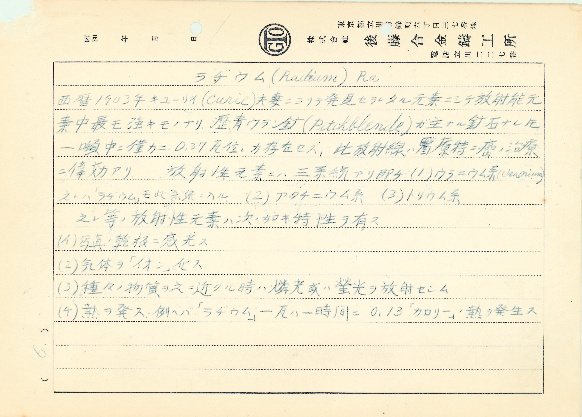 昭和 年 月 日
株式会社 後藤合金鑄工所
ラヂウム (Radium) Ra
西暦1903年キューリイ(Curie)夫妻ニヨリテ発見セラレタル元素ニシテ放射能元
素中最モ強キモノナリ. 瀝青ウラン鉱(Pitchblende)ガ主ナル鉱石ナレドモ
一噸中ニ僅カニ0.37瓦位シカ存在セズ, 此放射線ハ 癌ノ治療
ニ偉効アリ 放射性元素ニハ三系統アリ即チ(1)ウラニウム系(Uranium)
之レハ「ラヂウム」モ此系統ニ入ル (2)アクチニウム系 (3)トリウム系
之レ等ノ放射性元素ハ次ノ如キ特性ヲ有ス
乾板ニ感光ス
(2)気体ヲ「イオン」化ス
(3)種々ノ物質ヲ之ニ近クル時ハ燐光或ハ螢光ヲ放射セシム
(4)熱ヲ発ス. 例ヘバ「ラヂウム」一瓦ハ一時間ニ0.13「カロリー」ノ熱ヲ発生ス